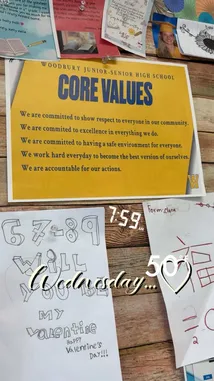 WOODBURY JUNIOR-SENIOR HIGH SCHOOL
CORE VALUES
We are committed to show respect to everyone in our community.
We are commited to excellence in everything we do.
We are committed to having a safe environment for everyone.
We work hard everyday to become the best version of ourselves.
We are accountable for our actions.
7:59
50
Wednesday...
67-89
Will
you be
my
valentine
Happy
Valentine's
Day!!!